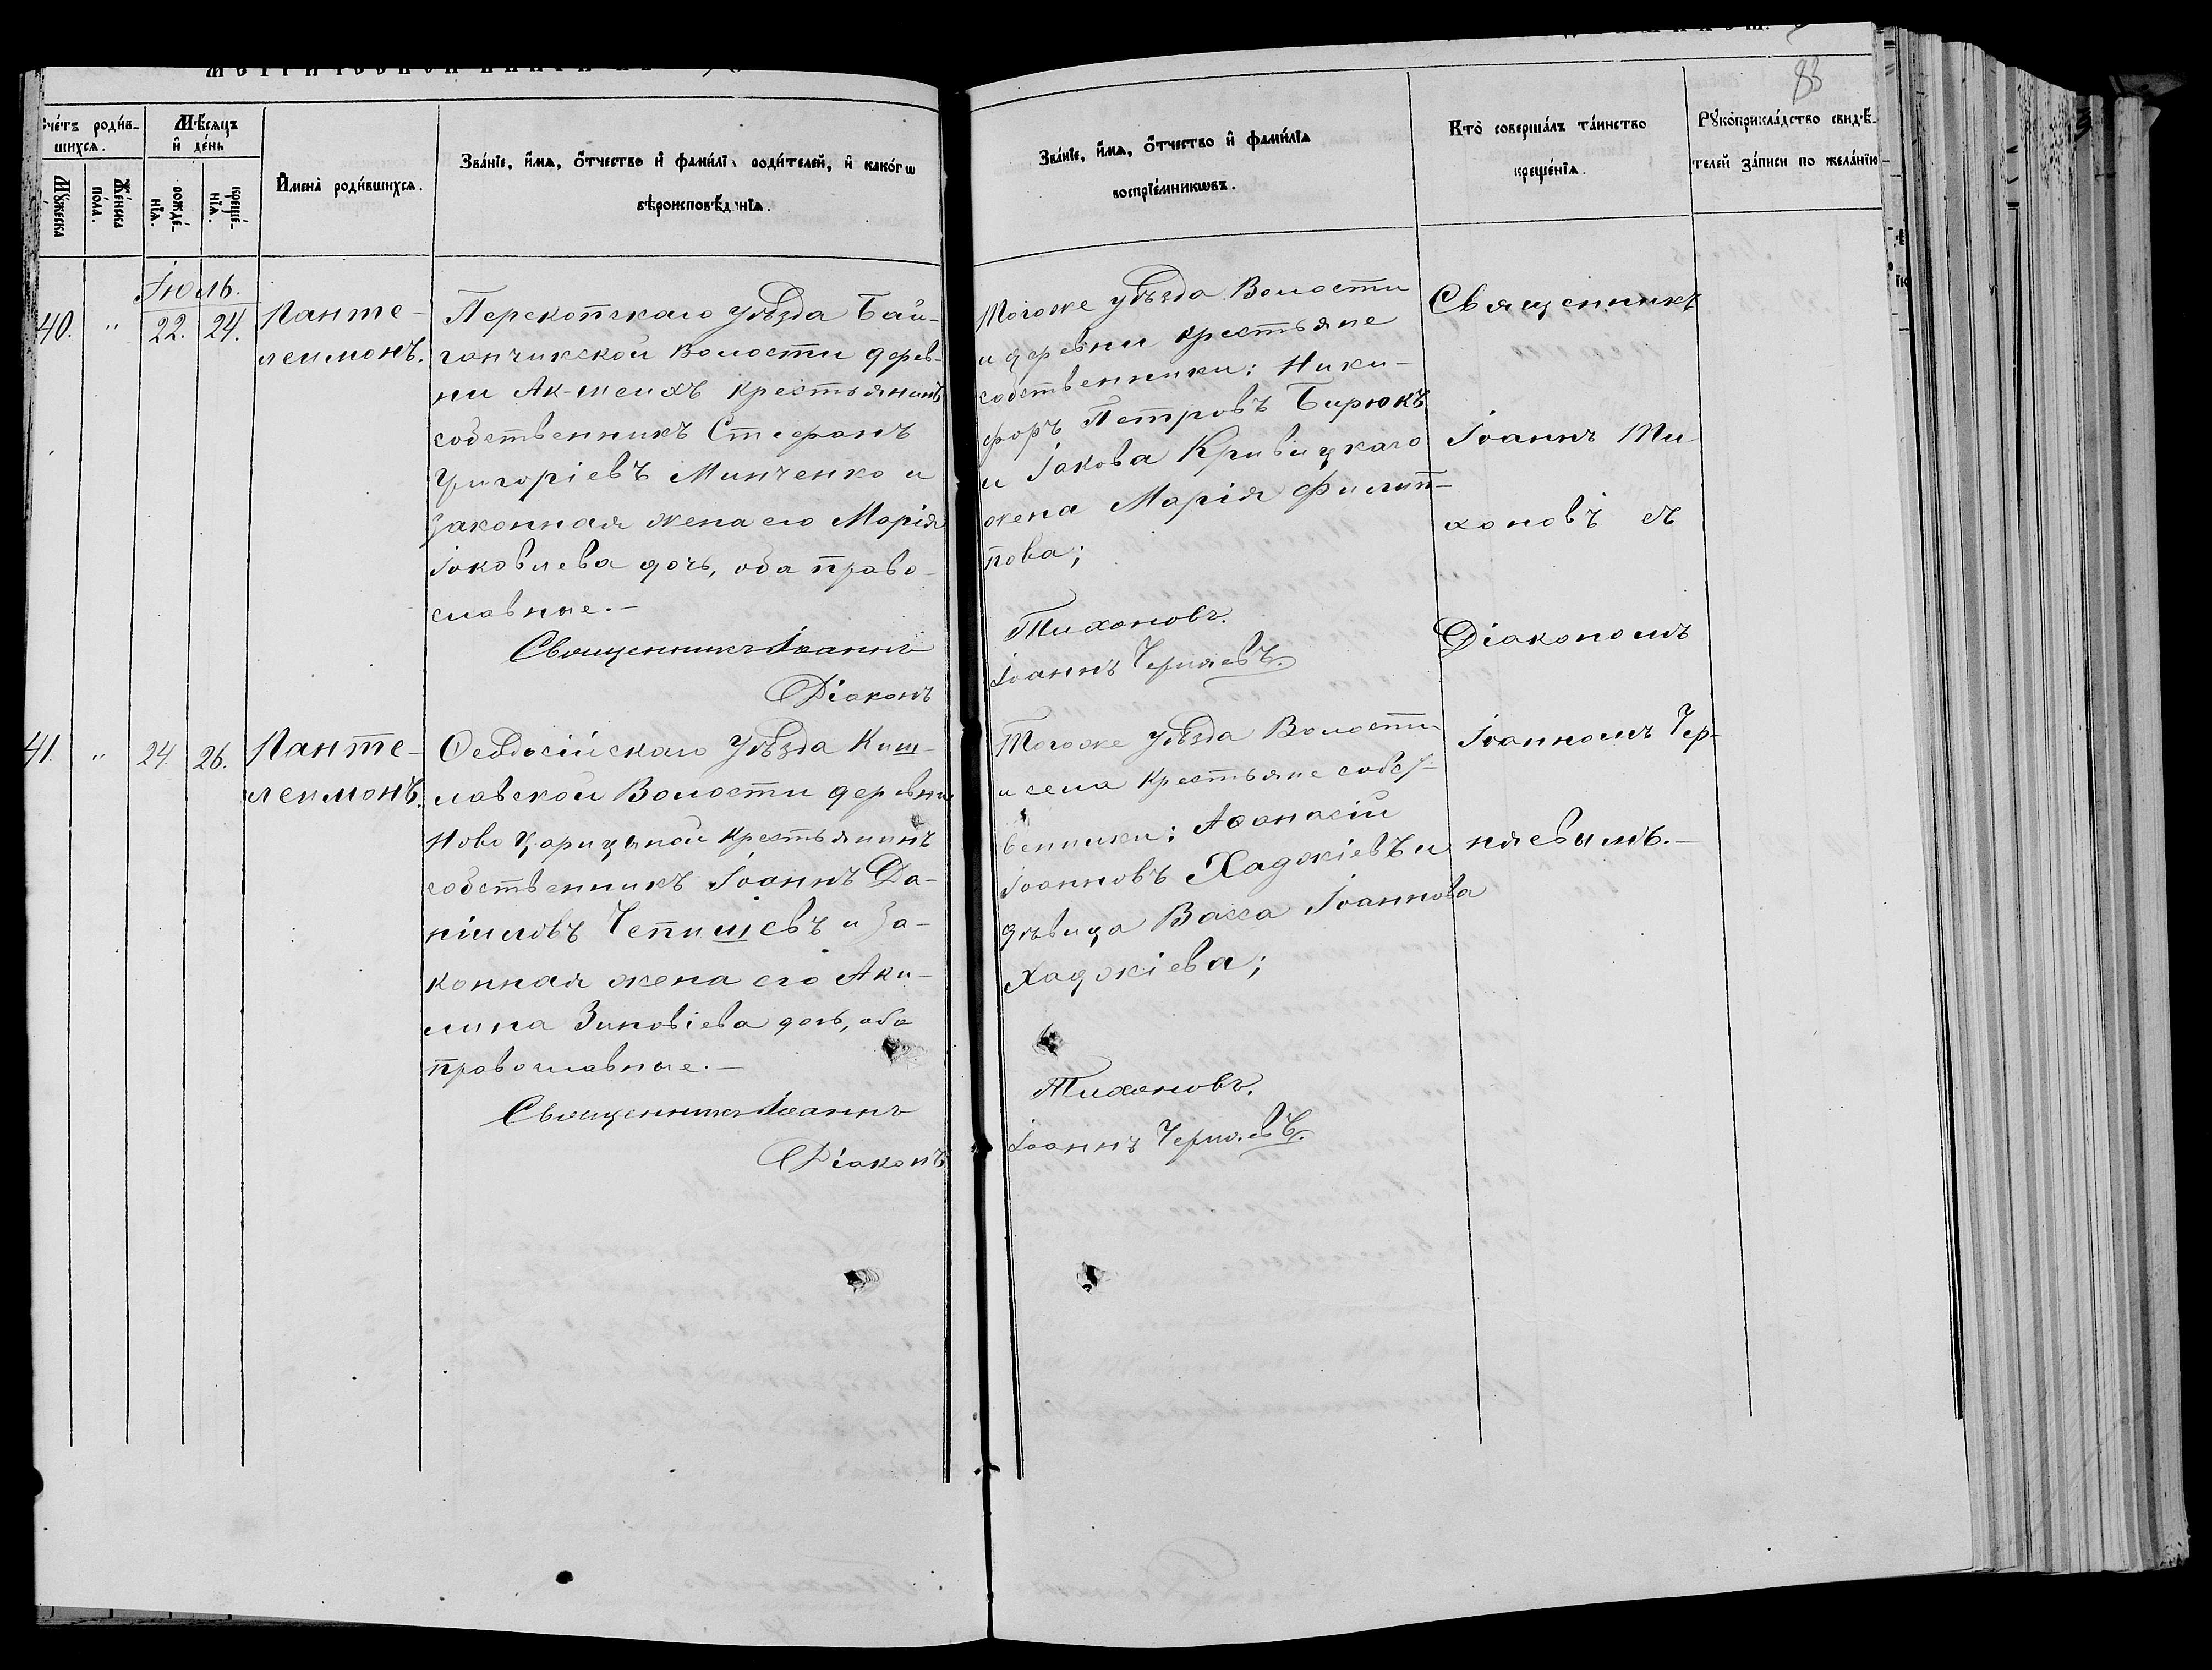 83
Счетъ родив-
шихся.
Мѣсяцъ
и день
Имена родившихся.
Званіе, имя, отчество и фамилія родителей, и какогѡ
вѣроисповѣданія.
Мужеска
Женска
пола.
рожде-
нія.
креще-
нія.
Званіе, имя, отчество и фамилія
воспріемникѡвъ.
Кто совершалъ таинство
крещенія.
Рукоприкладство свидѣ-
телей записи по желанію
Іюль.
40. " 22. 24.
Панте-
леимонъ.
Перекопскаго уѣзда Бай-
гончикской Волости дерев-
ни Ак-шеихъ крестьянинъ
собственникъ Стефанъ
Григоріевъ Минченко и
законная жена его Марія
Іаковлева дочь, оба право-
славные.—
Священникъ Іоаннъ
Діаконъ
Тогоже уѣзда Волости
и деревни крестьяне
собственники: Ники-
форъ Петровъ Бирюкъ
и Іакова Кривицкаго
жена Марія Филип-
пова;
Тихоновъ.
Іоаннъ Черняевъ.
Священникъ
Іоаннъ Ти-
хоновъ съ
Діакономъ
Іоанномъ Чер-
няевымъ.—
41. " 24. 26.
Панте-
леимонъ.
Ѳеодосійскаго уѣзда Киш-
лавской Волости деревни
Ново Царицыной крестьянинъ
собственникъ Іоаннъ Да-
ніиловъ Чепишевъ и за-
конная жена его Аки-
лина Зиновіева дочь, оба
православные.—
Священникъ Іоаннъ
Діаконъ
Тогоже уѣзда Волости
и села крестьяне собст-
венники: Аѳанасій
Іоанновъ Хаджіевъ и
дѣвица Васса Іоаннова
Хаджіева;
Тихоновъ.
Іоаннъ Черняевъ.